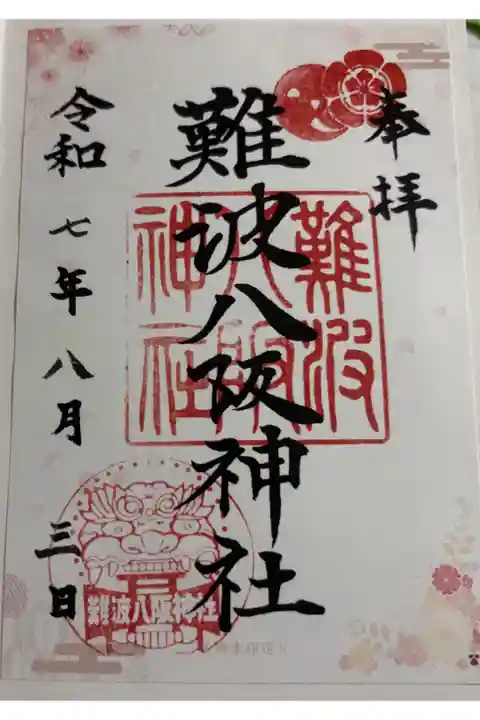 奉拝
難波八阪神社
難波
八阪
神社
令和七年八月三日
難波八阪神社